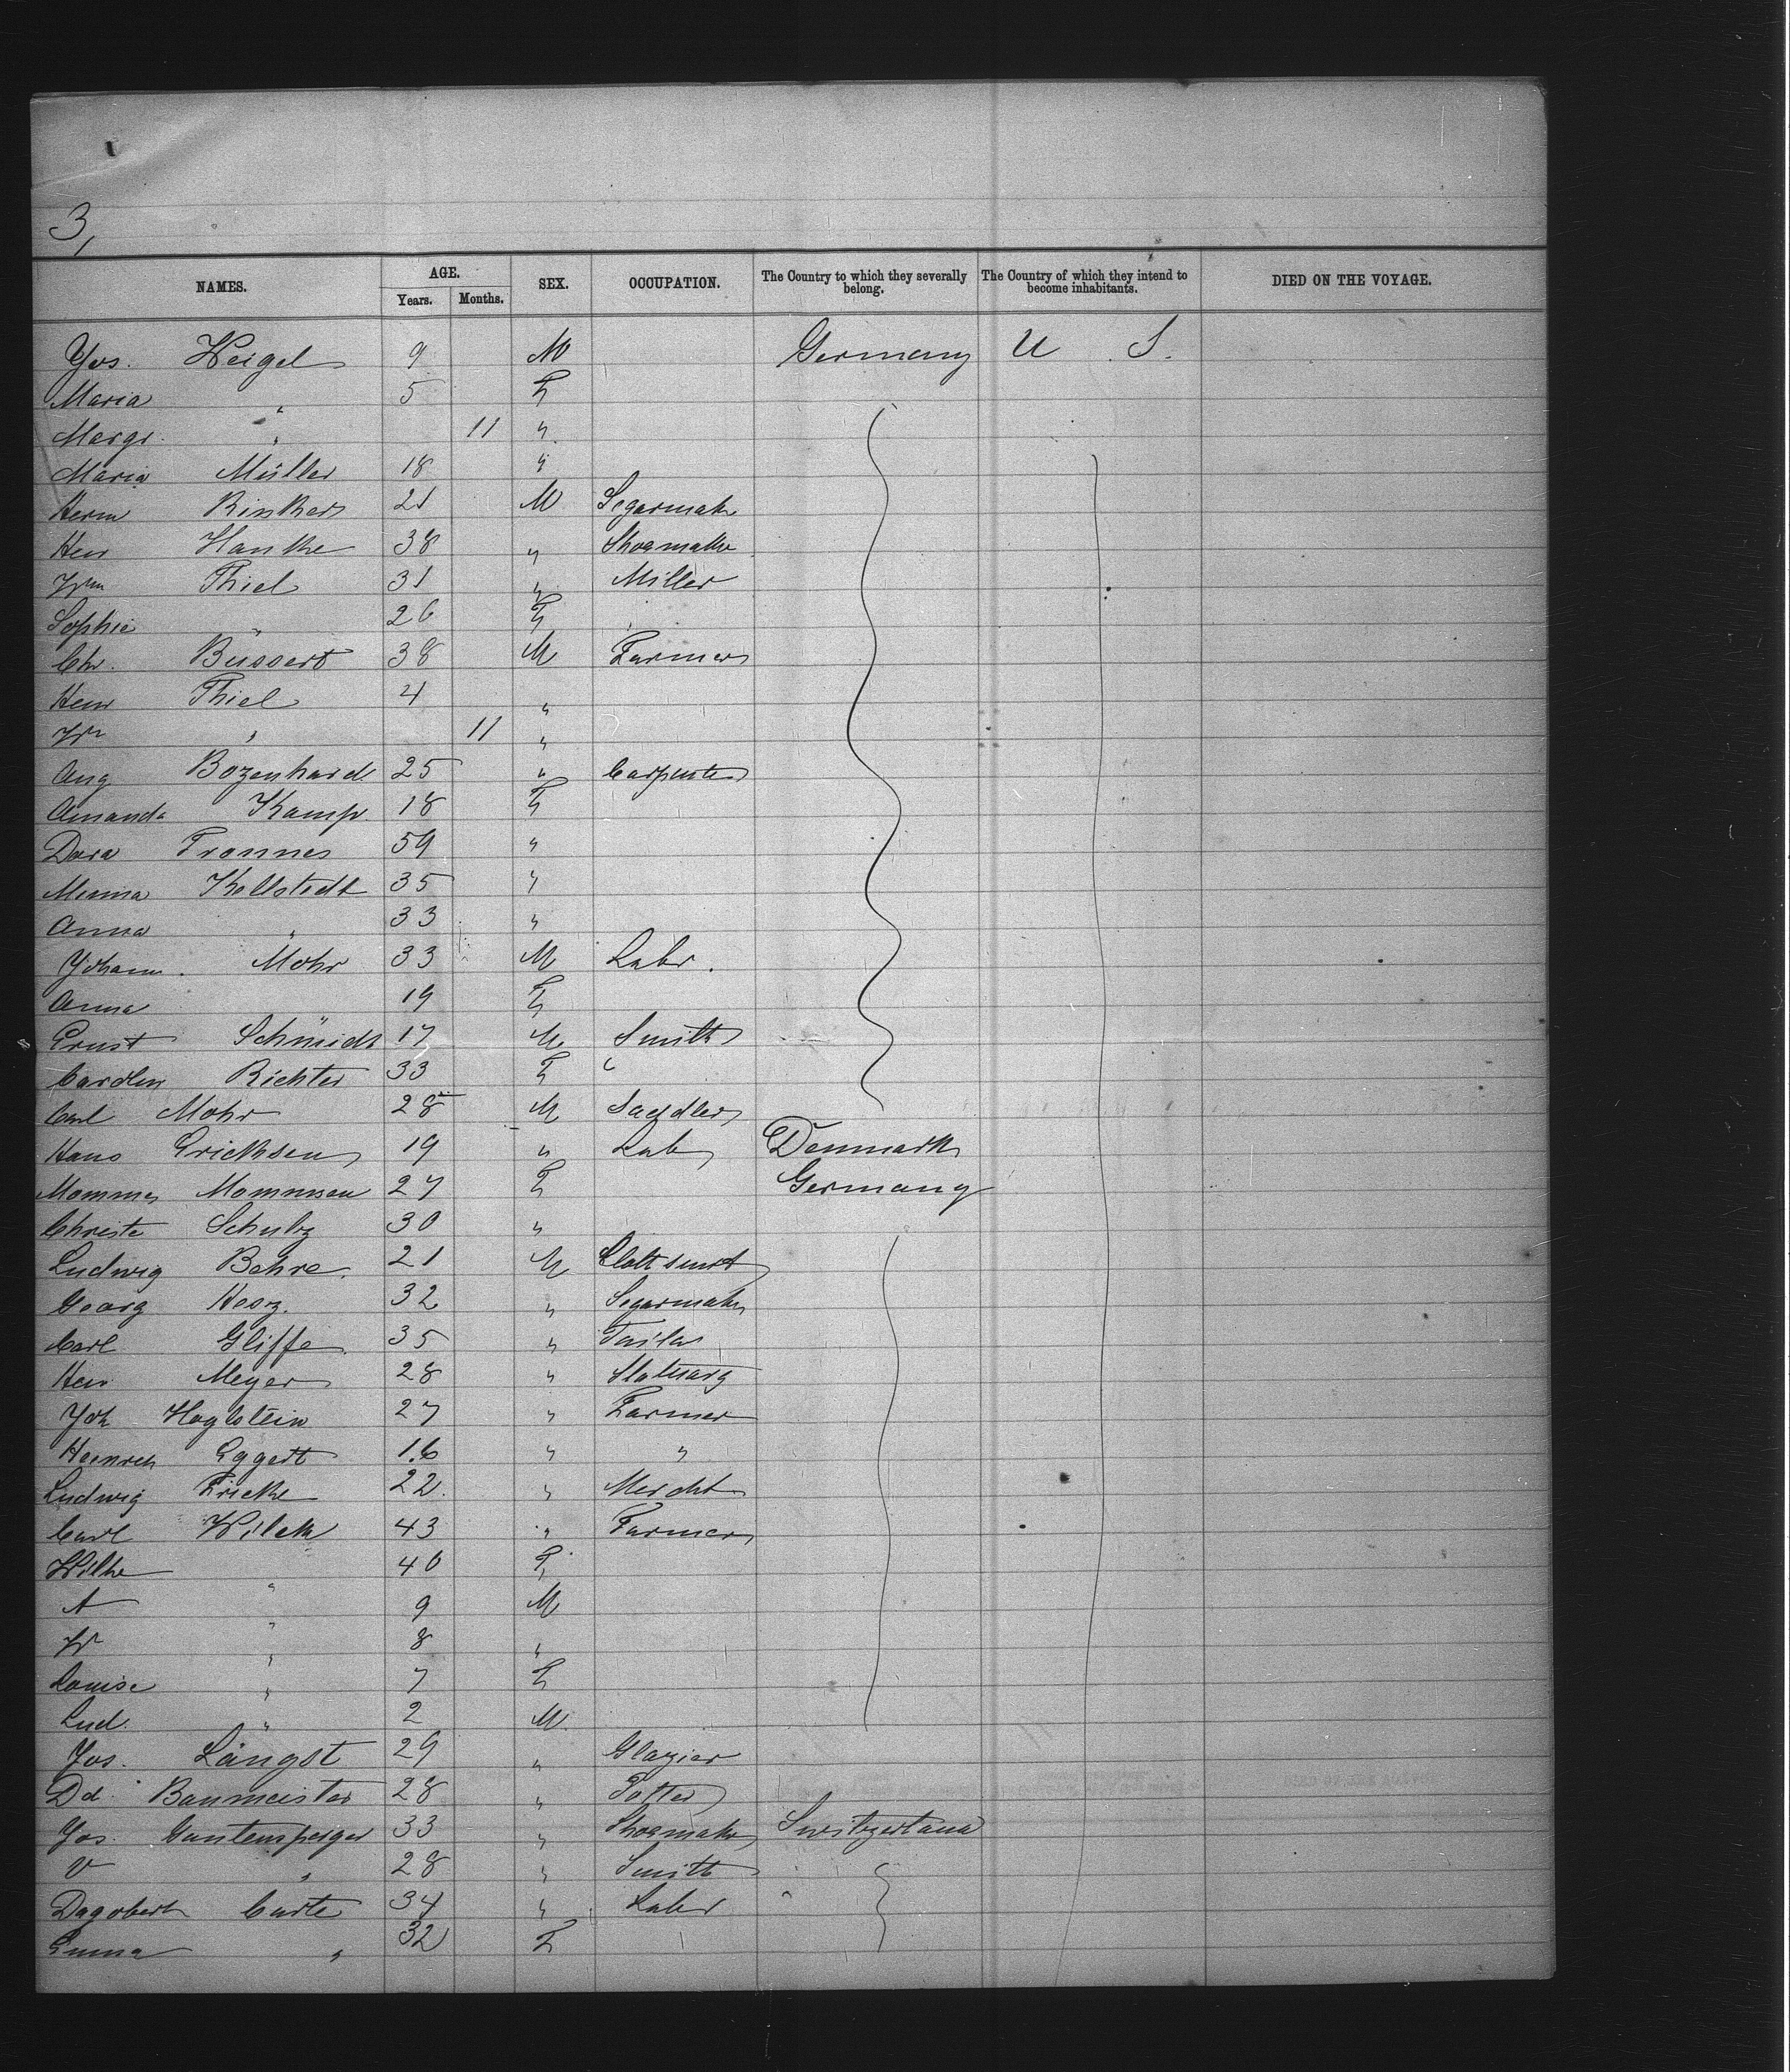 3,
NAMES. AGE. SEX. OCCUPATION. The Country to which they severally belong. The Country of which they intend to become inhabitants. DIED ON THE VOYAGE.
Years. Months.
Jos. Weigel 9 M Germany U S.
Maria " 5 F
Margr. " 11 "
Maria Müller 18 "
Herm Rinker 21 M Segarmak
Hen Hanke 38 " Shoemake
Wm Thiel 31 " Miller
Sophie " 26 F
Chr. Bussert 38 M Farmer
Henr Thiel 4 "
Wm " 11 "
Aug Bozenhard 25 " Carpenter
Amanda Kamp 18 F
Dora Fronnes 59 "
Minna Kollstedt 35 "
Anna " 33 "
Johann. Mohr 33 M Labr.
Anna " 19 F
Ernst Schmidt 17 M Smith
Carolin Richter 33 F
Carl Mohr 28 M Saddler
Hans Erichsen 19 " Lab Denmark
Momme Mommsen 27 F Germany
Christe Schulz 30 "
Ludwig Behre. 21 M
Georg Herz. 32 " Segarmak
Carl Gliffe 35 " Tailor
Hen Meyer 28 "
Joh Hoglstein 27 " Farmer
Heinrich Eggert 16 " "
Ludwig Fricke 22. " Mercht
Carl Wilck 43 " Farmer
Wilhe " 40 F
A " 9 M
W " 8 "
Louise " 7 F
Lud. " 2 M.
Jos. Längst 29 " Glazier
Dd. Baumeister 28 " Potter
Jos. Guntensperger 33 " Shoemake Switzerland
V " 28 " Smith
Dagobert Curte 34 " Labr
Emma " 32 F